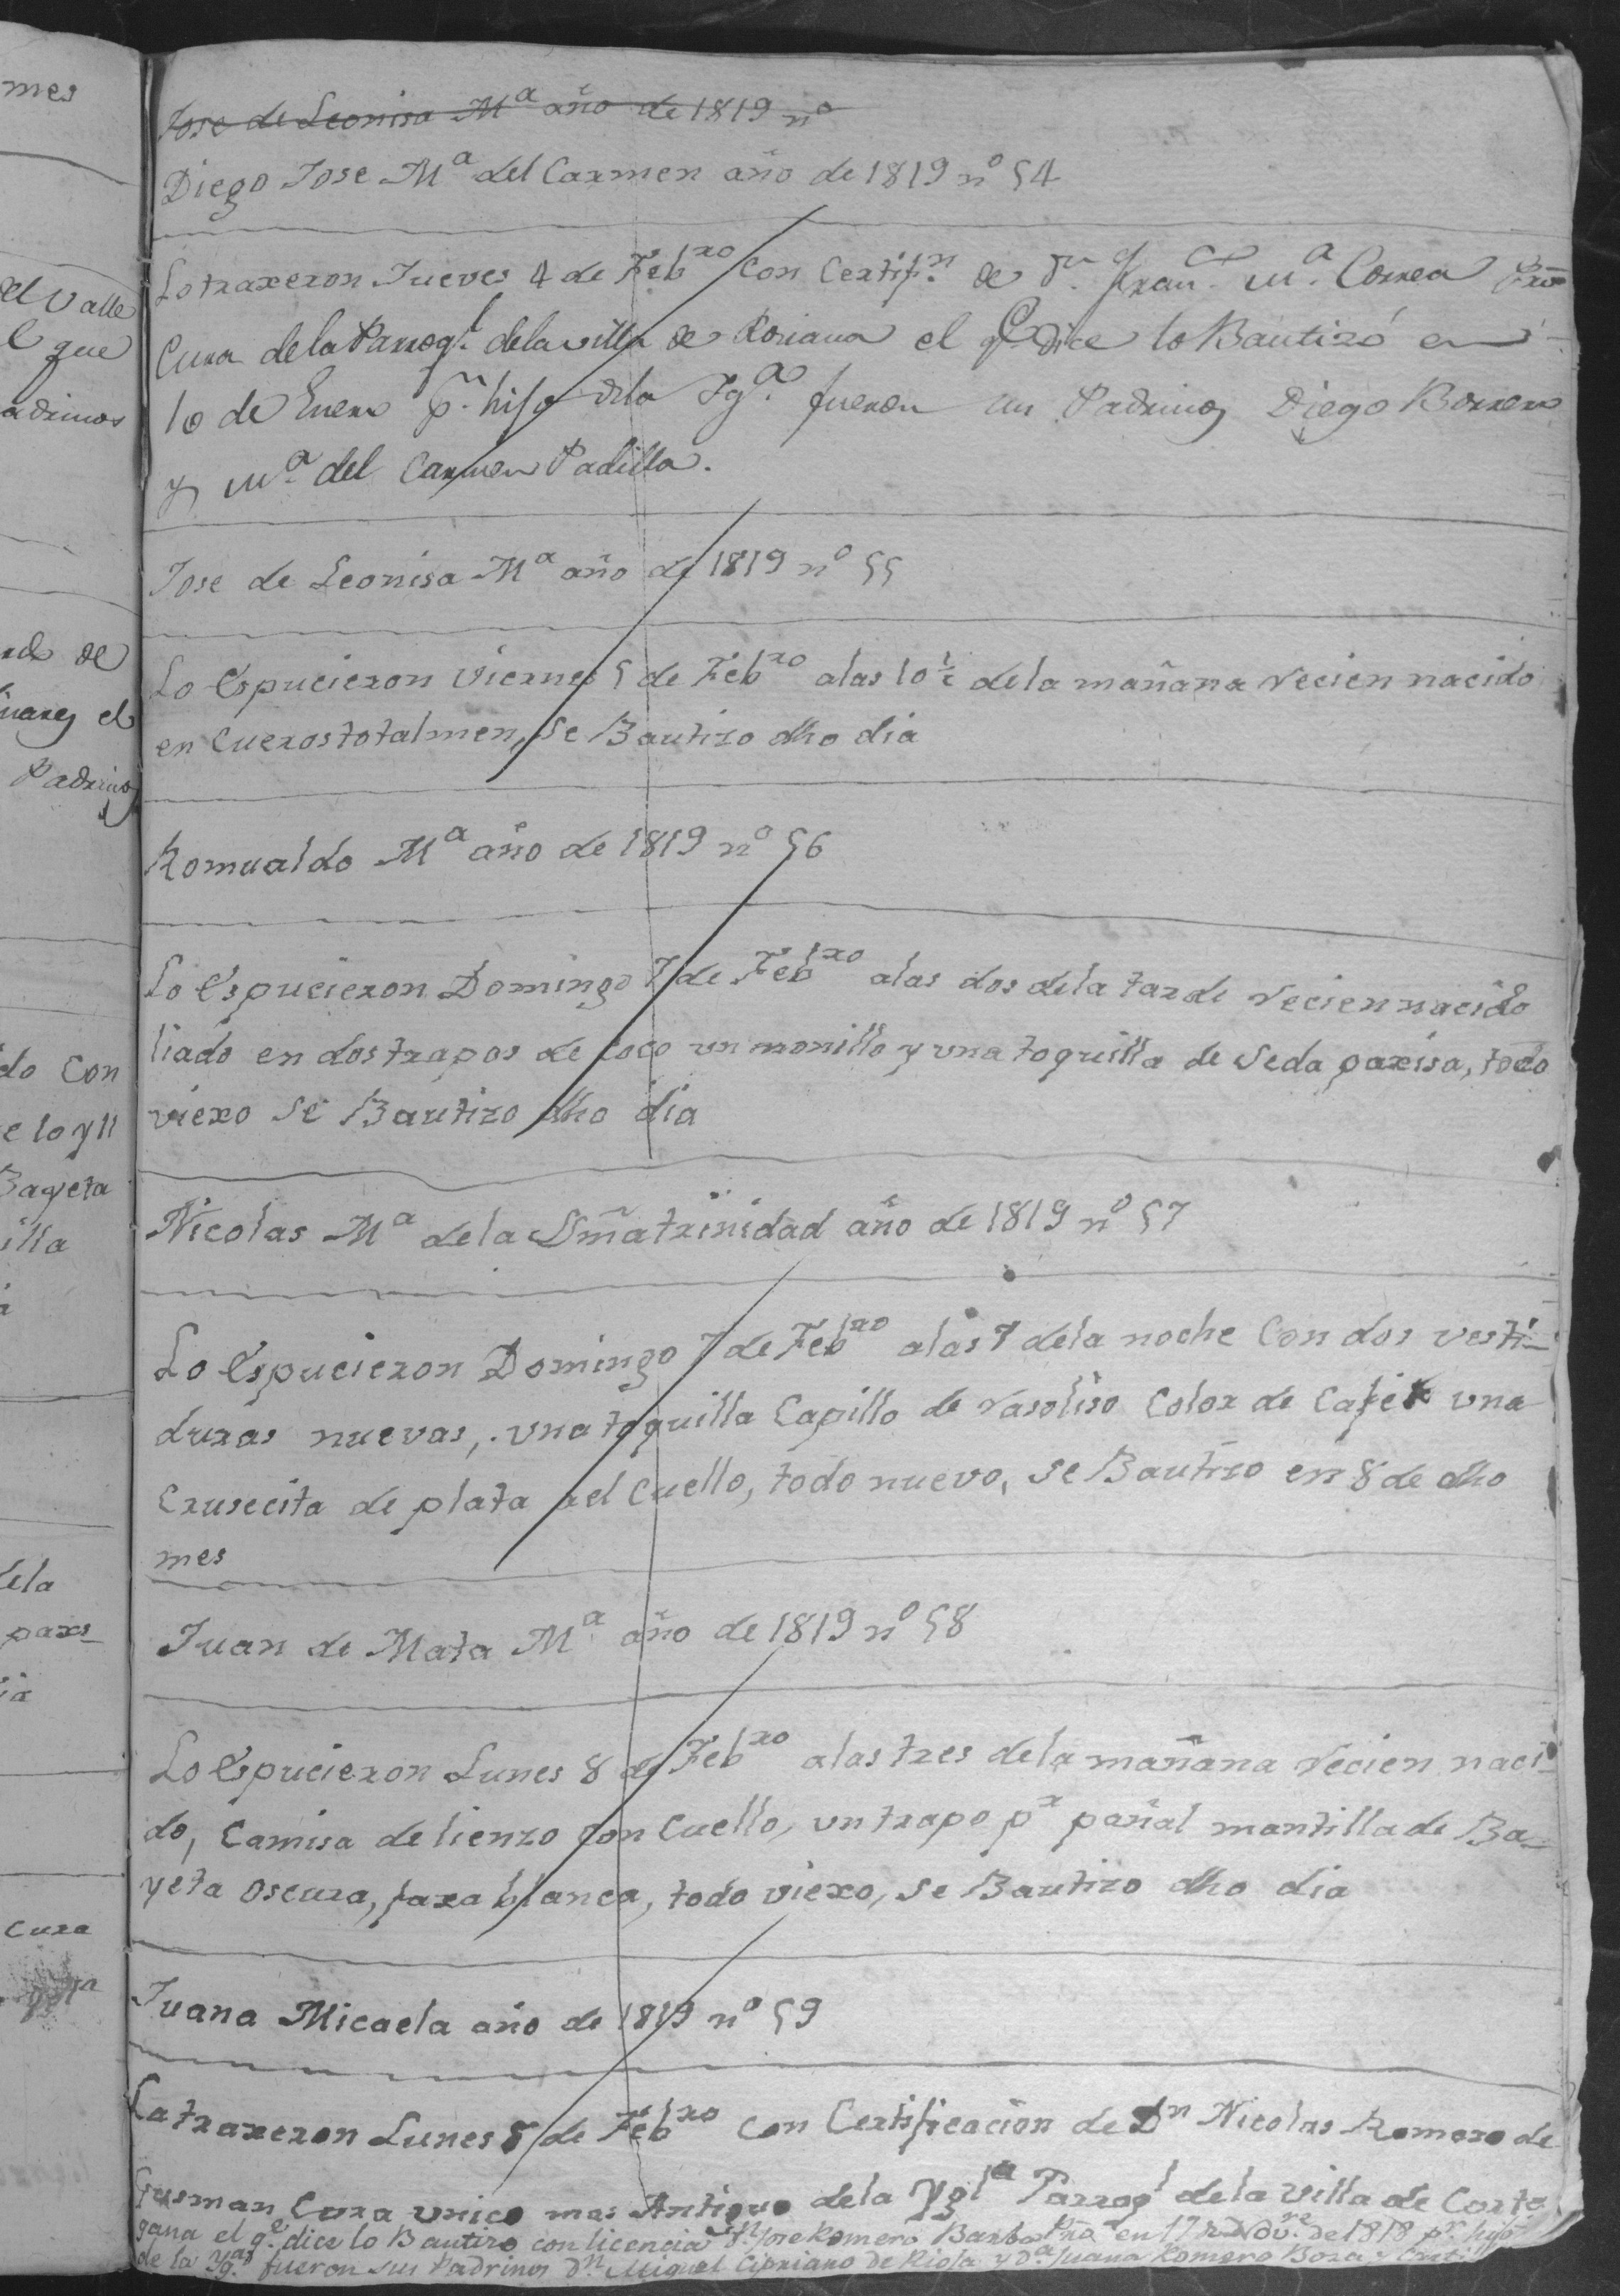 mes
el Valle
l que
adrinos
de
el
Padrinos
do Con
e lo y ll
Bayeta
illa
dela
pars_
ia
Cura
Jose de Leonisa Mª año de 1819 nº
Diego Jose Mª del Carmen año de 1819 nº 54
Lo traxeron Jueves 4 de Febro con Certifn de Dn Franco Mª Correa Pro
Cura de la Parroql de la villa de Rociana el qe dice lo Bautizó en
10 de Enero pr hijo dela Yga fueron sus Padrinos Diego Borrero
y Mª del Carmen Padilla.
Jose de Leonisa Mª año de 1819 nº 55
Lo Espucieron Viernes 5 de Febro alas 10½ dela mañana recien nacido
en Cueros totalmen, se Bautizo dho dia
Romualdo Mª año de 1819 nº 56
Lo Espucieron Domingo 7 de Febro alas dos dela tarde recien nacido
liado en dos trapos de Coco un monillo y una toquilla de seda parisa, todo
viexo se Bautizo dho dia
Nicolas Mª dela Smã trinidad año de 1819 nº 57
Lo Espucieron Domingo 7 de Febro alas 7 dela noche Con dos vesti_
duras nuevas, una toquilla Capillo de raso liso Color de Cafe una
Crusecita de plata al Cuello, todo nuevo, se Bautizo en 8 de dho
mes
Juan de Mata Mª año de 1819 nº 58
Lo Espucieron Lunes 8 de Febro alas tres dela mañana recien naci_
do, Camisa de lienzo con Cuello, un trapo pr pañal mantilla de Ba_
yeta oscura, faxa blanca, todo viexo, se Bautizo dho dia
Juana Micaela año de 1819 nº 59
La traxeron Lunes 8 de Febro Con Certificacion de Dn Nicolas Romero de
Gusman Cura unico mas Antiguo dela Yglª Parroql dela Villa de Corte
gana el qe dice lo Bautizo con licencia Dn Jose Romero Barbo Pro en 17 de Novre de 1818 pr hijo
de la Yga fueron sus Padrinos Dn Miguel Cipriano de Rioja y Dª Juana Romero Bora